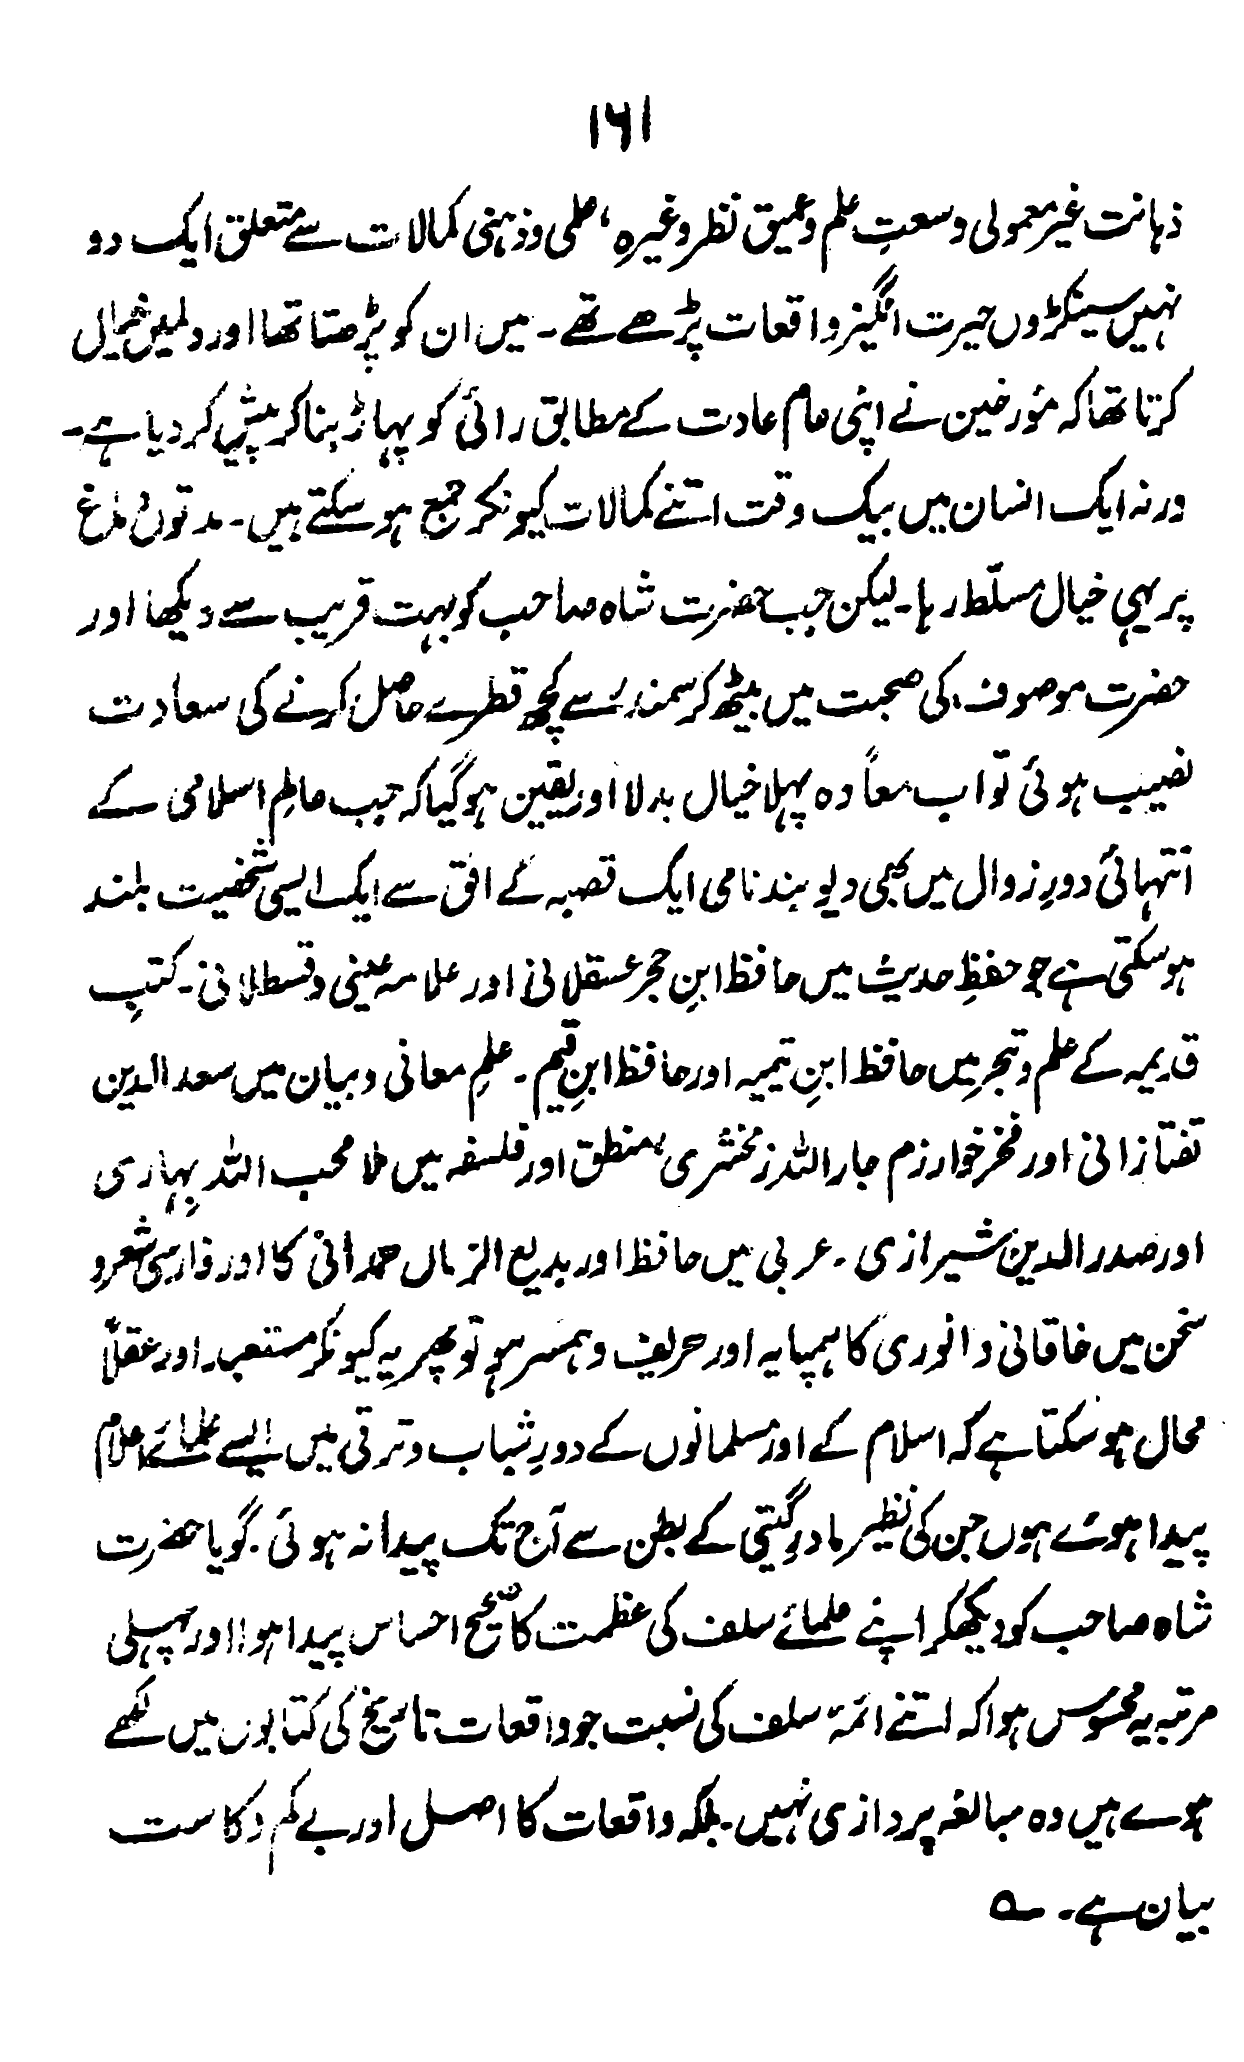 ۱۶۱
ذہانت غیر معمولی وسعتِ علم و عمیق نظر وغیرہ، علمی و ذہنی کمالات سے متعلق ایک دو
نہیں سینکڑوں حیرت انگیز واقعات پڑھے تھے۔ میں ان کو پڑھتا تھا اور دل میں خیال
کرتا تھا کہ مؤرخین نے اپنی عام عادت کے مطابق رائی کو پہاڑ بنا کر پیش کر دیا ہے۔
ورنہ ایک انسان میں بیک وقت اتنے کمالات کیونکر جمع ہو سکتے ہیں۔ مدتوں دماغ
پر یہی خیال مسلّط رہا۔ لیکن جب حضرت شاہ صاحب کو بہت قریب سے دیکھا اور
حضرت موصوف کی صحبت میں بیٹھ کر سمندر سے کچھ قطرے حاصل کرنے کی سعادت
نصیب ہوئی تو اب معاً وہ پہلا خیال بدلا اور یقین ہو گیا کہ جب عالمِ اسلامی کے
انتہائی دورِ زوال میں بھی دیو بند نامی ایک قصبہ کے افق سے ایک ایسی شخصیت بلند
ہو سکتی ہے جو حفظِ حدیث میں حافظ ابنِ حجر عسقلانی اور علامہ عینی و قسطلانی۔ کتبِ
قدیمہ کے علم و تبحر میں حافظ ابنِ تیمیہ اور حافظ ابنِ قیم۔ علمِ معانی و بیان میں سعد الدین
تفتازانی اور فخرِ خوارزم جار اللہ زمخشری، منطق اور فلسفہ میں ملا محب اللہ بہاری
اور صدر الدین شیرازی۔ عربی میں حافظ اور بدیع الزماں ہمدانی کا اور فارسی شعر و
سخن میں خاقانی و انوری کا ہمپایہ اور حریف و ہمسر ہو تو پھر یہ کیونکر مستبعد اور عقلاً
محال ہو سکتا ہے کہ اسلام کے اور مسلمانوں کے دورِ شباب و ترقی میں ایسے علمائے اعلام
پیدا ہوئے ہوں جن کی نظیر مادرِ گیتی کے بطن سے آج تک پیدا نہ ہوئی۔ گویا حضرت
شاہ صاحب کو دیکھکر اپنے علمائے سلف کی عظمت کا صحیح احساس پیدا ہوا اور پہلی
مرتبہ یہ محسوس ہوا کہ اتنے ائمۂ سلف کی نسبت جو واقعات تاریخ کی کتابوں میں لکھے
ہوے ہیں وہ مبالغہ پردازی نہیں۔ بلکہ واقعات کا اصل اور بے کم و کاست
بیان ہے۔ ؎